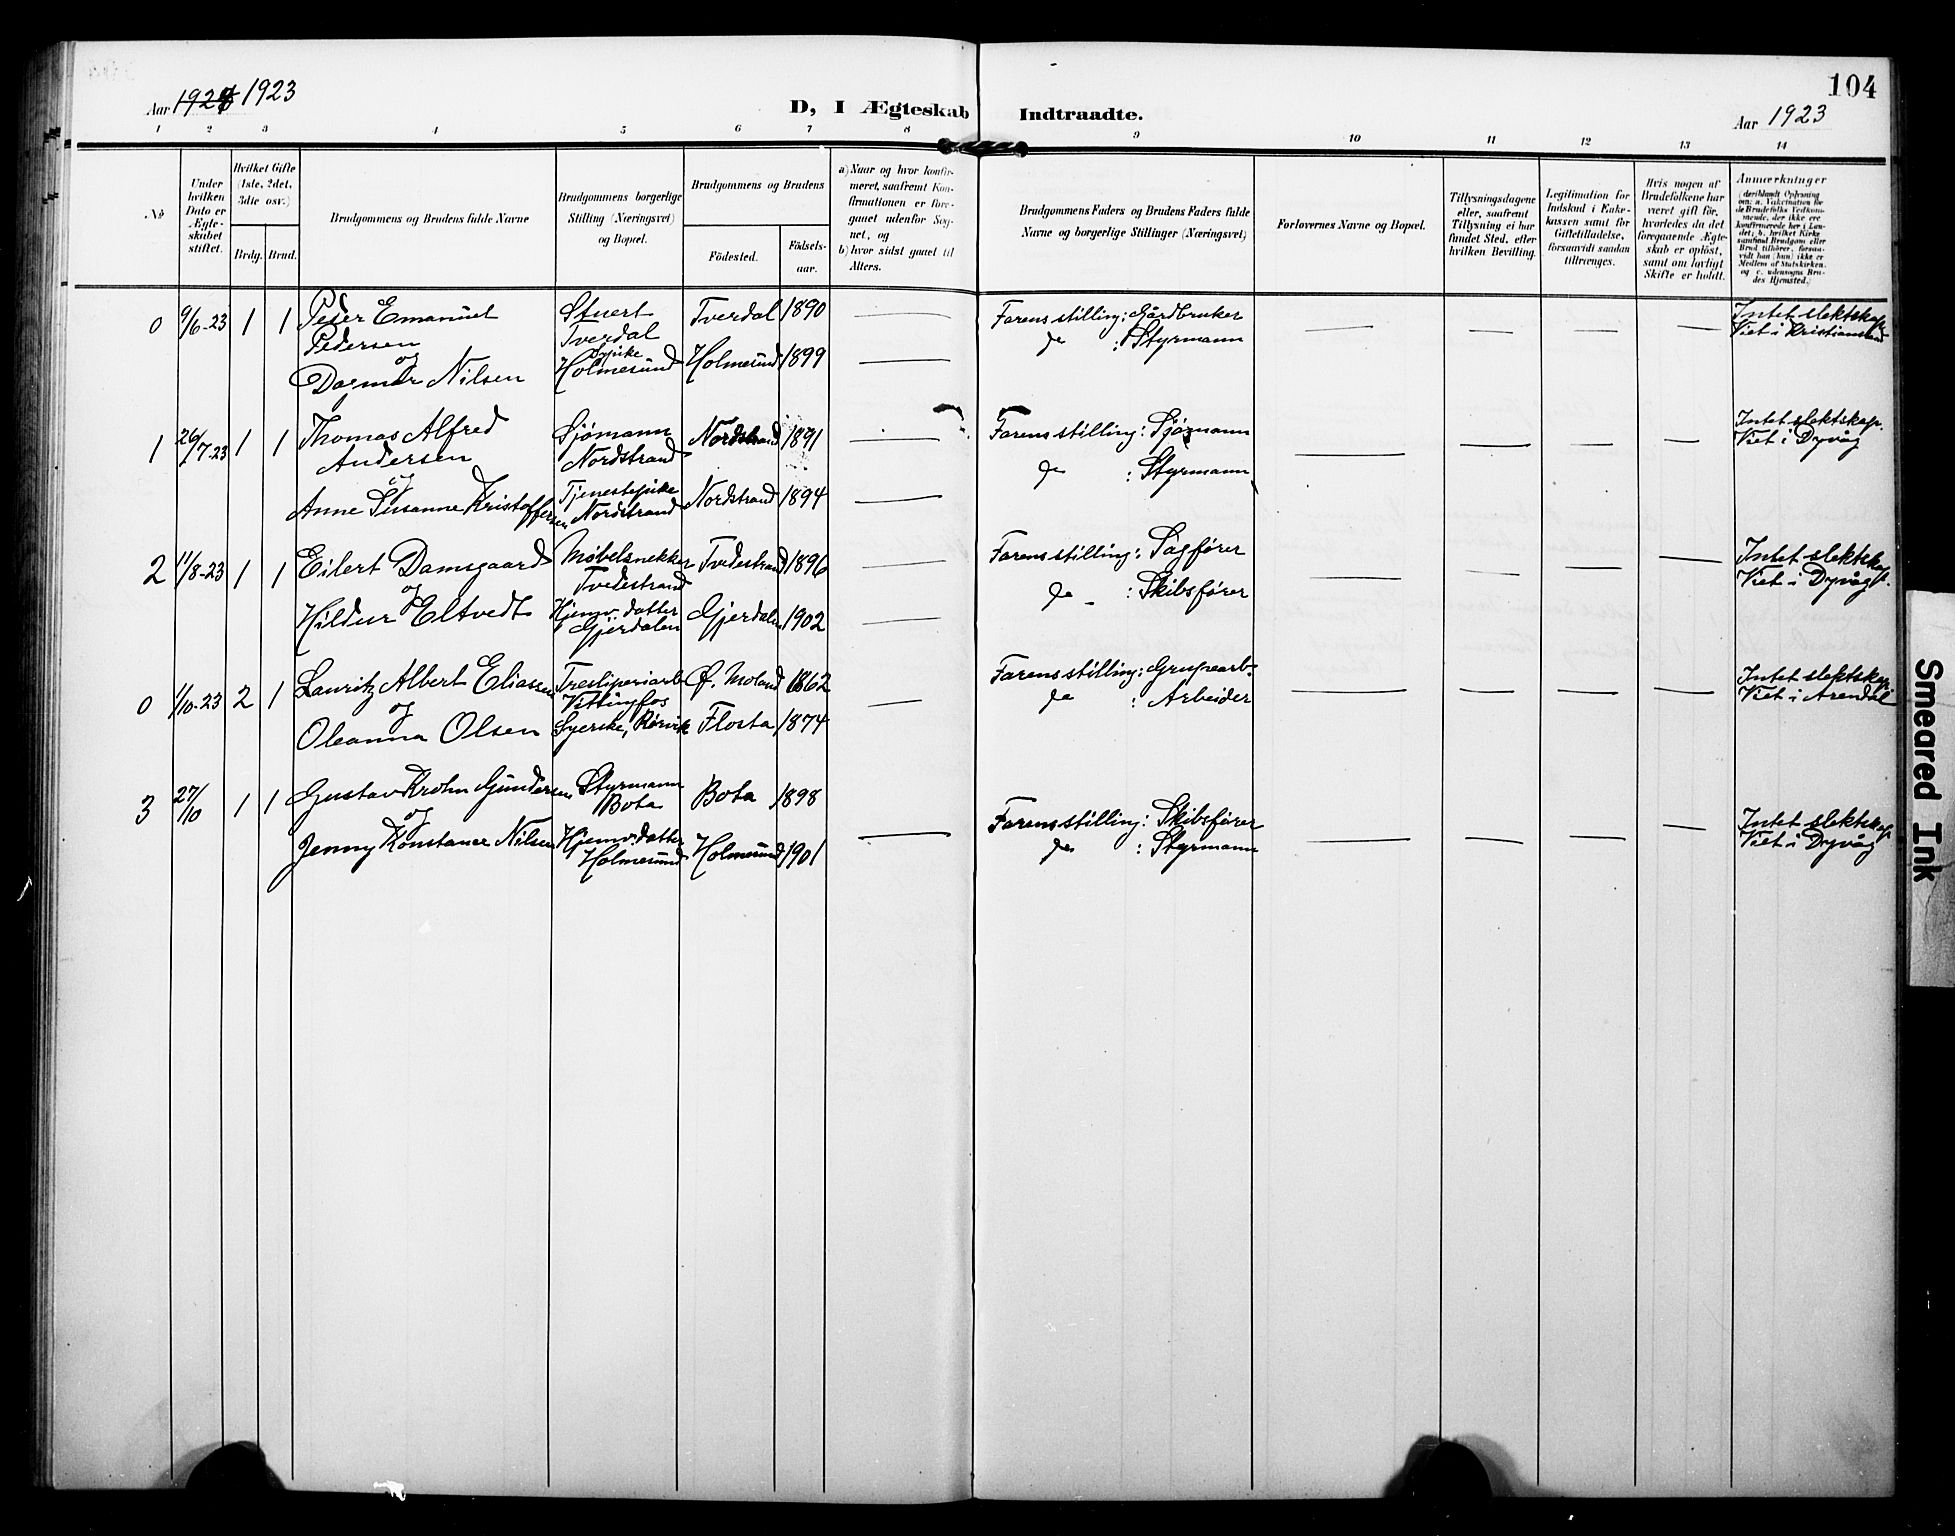 Aar 1924 1923
D, I Ægteskab Indtraadte.
Aar 1923
104
1 2 3 4 5 6 7 8 9 10 11 12 13 14
No
Under hvilken Dato er Ægteskabet stiftet.
Hvilket Gifte (1ste, 2det, 3die osv.)
Brdg. Brud.
Brudgommens og Brudens fulde Navne
Brudgommens borgerlige Stilling (Næringsvei) og Bopæl.
Brudgommens og Brudens
Födested.
Födsels-aar.
a) Naar og hvor konfir-
meret, saafremt Kon-
firmationen er fore-
gaaet udenfor Sog-
net, og
b) hvor sidst gaaet til
Alters.
Brudgommens Faders og Brudens Faders fulde
Navne og borgerlige Stillinger (Næringsvei)
Forlovernes Navne og Bopæl.
Tillysningsdagene
eller, saafremt
Tillysning ei har
fundet Sted, efter
hvilken Bevilling.
Legitimation for
Indskud i Enke-
kassen samt for
Giftetilladelse,
forsaavidt saadan
tiltrænges.
Hvis nogen af
Brudefolkene har
været gift för,
hvorledes da det
foregaaende Ægte-
skab er oplöst,
samt om lovligt
Skifte er holdt.
Anmærkninger
(deriblandt Oplysning
om: a. Vakcination for
de Brudefolks Vedkom-
mende, der ikke ere
konfirmerede her i Lan-
det; b. hvilket Kirke-
samfund Brudgom eller
Brud tilhörer, forsaa-
vidt han (hun) ikke er
Medlem af Statskirken,
og c. udensogns Bru-
des Hjemsted.)
0 9/6-23 1 1 Peder Emanuel Pedersen og Dagmar Nilsen
Stuert Tverdal
Sypike Holmesund
Tverdal 1890
Holmesund 1899
Farens stilling: Gårdbruker
do : Styrmann
Intet slektskap.
Viet i Kristiansand
1 26/7-23 1 1 Thomas Alfred Andersen og Anne Susanne Kristoffersen
Sjömann Nordstrand
Tjenestepike Nordstrand
Nordstrand 1891
Nordstrand 1894
Farens stilling: Sjömann
do : Styrmann
Intet slektskap.
Viet i Dyvåg
2 11/8-23 1 1 Eilert Damsgaard og Hildur Eltvedt
Møbelsnekker Tvedestrand
Hjemv. datter Gjerdalen
Tvedestrand 1896
Gjerdalen 1902
Farens stilling: Sagfører
do - : Skibsfører
Intet slektskap
Viet i Dyvåg
0 1/10-23 2 1 Lauritz Albert Eliassen og Oleanna Olsen
Tresliperiarb. Vittingfos
Syerske, Rørvik
Ø. Moland 1862
Flosta 1874
Farens stilling: Grupearb.
do : Arbeider
Intet slektskap
Viet i Arendal
3 27/10 1 1 Gustav Krohn Gundersen og Jenny Konstance Nilsen
Styrmann Bota
Hjemv. datter Holmesund
Bota 1898
Holmesund 1901
Farens stilling: Skibsfører
do : Styrmann
Intet slektskap.
Viet i Dyvåg
Smeared Ink